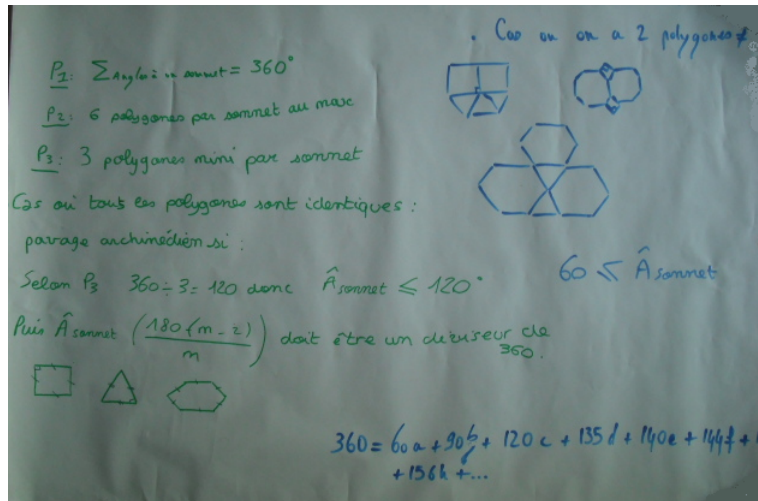 P1: Σ Angles à un sommet = 360°
P2: 6 polygones par sommet au max
P3: 3 polygones mini par sommet
Cas où tous les polygones sont identiques :
pavage archimédien si :
Selon P3 360÷3 = 120 donc Â sommet ≤ 120°
Puis Â sommet (180(n-2)/n) doit être un diviseur de
360.
. Cas ou on a 2 polygones ≠
60 ≤ Â sommet
360 = 60a + 90b + 120c + 135d + 140e + 144f +
+ 156h + ...